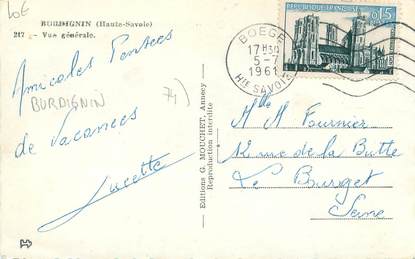 10€
BURDIGNIN (Haute-Savoie)
217 - Vue générale.
Amicales Pensées
BURDIGNIN
74)
de Vacances
Lucette
Editions G. MOUCHET, Annecy
Reproduction interdite
BOEGE
17H30
5-7
1961
HTE SAVOIE
REPUBLIQUE FRANÇAISE
0,15
Melle M Fournier
rue de la Butte
Le Burget
Seine